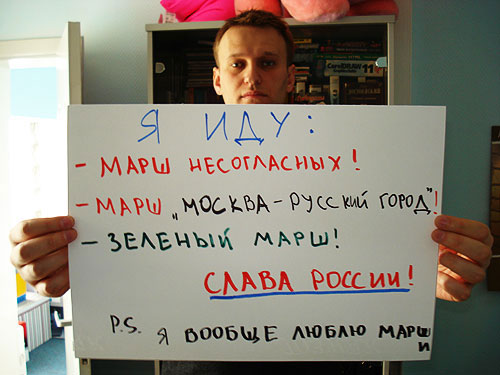 Я ИДУ:
- МАРШ НЕСОГЛАСНЫХ!
- МАРШ „МОСКВА - РУССКИЙ ГОРОД"!
- ЗЕЛЕНЫЙ МАРШ!
СЛАВА РОССИИ!
P.S. Я ВООБЩЕ ЛЮБЛЮ МАРШ
И
CorelDRAW 11